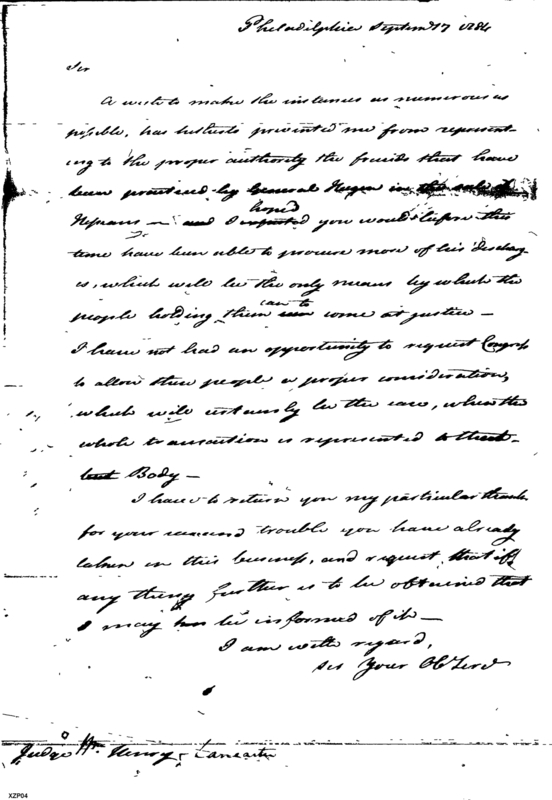 Philadelphia Septem 17 1784
Sir
A wish to make the instances as numerous as
possible, has hitherto prevented me from represent-
ing to the proper authority the frauds that have
been practised by General Hazen in the sale of
hoped
Hessians — and I expected you would before this
time have been able to procure more of his discharg
es, which will be the only means by which the
can to
people holding them can come at justice —
I have not had an opportunity to request Congress
to allow these people a proper consideration,
which will certainly be the case, when the
whole transaction is represented to that
Body —
I have to return you my particular thanks
for your trouble you have already
taken in this business, and request that if
any thing further is to be obtained that
I may be informed of it —
I am with regard,
Sir Your Ob Serv
Judge Wm Henry, Lancaster
XZP04